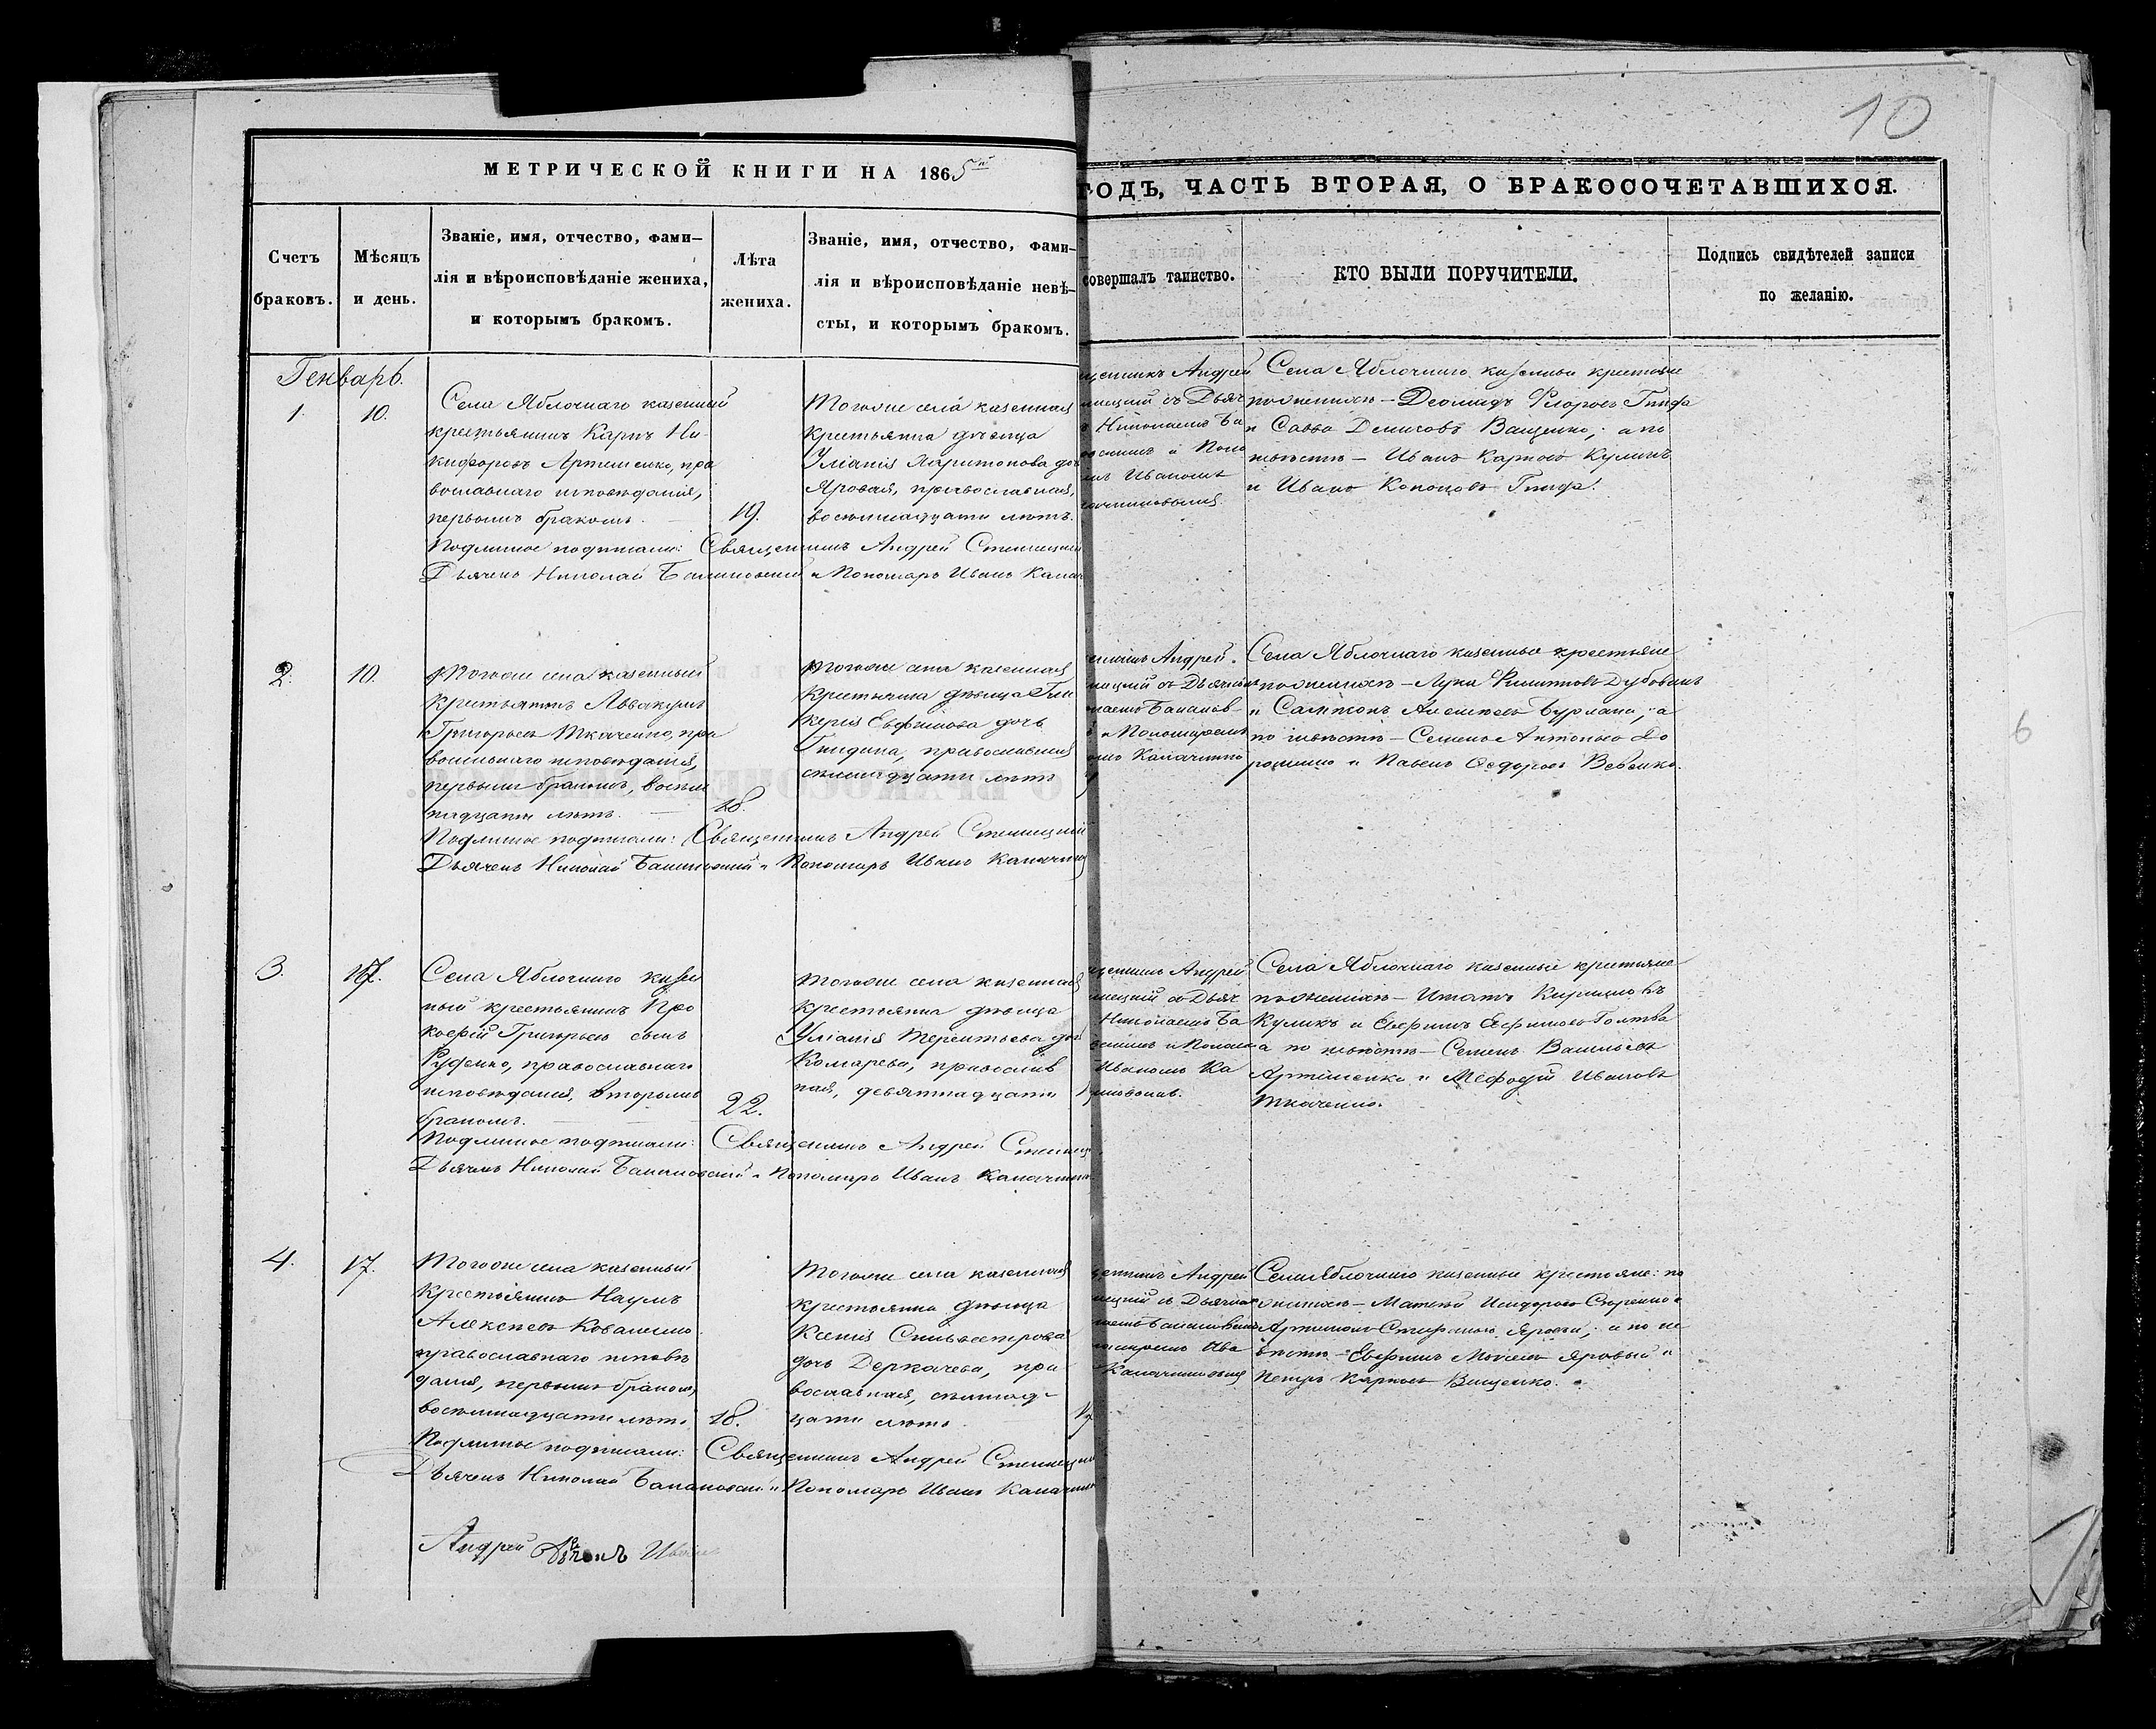 10
МЕТРИЧЕСКОЙ КНИГИ НА 1865й
ГОДЪ, ЧАСТЬ ВТОРАЯ, О БРАКОСОЧЕТАВШИХСЯ.
Счетъ браковъ.
Мѣсяцъ и день.
Званіе, имя, отчество, фами-
лія и вѣроисповѣданіе жениха,
и которымъ бракомъ.
Лѣта жениха.
Званіе, имя, отчество, фами-
лія и вѣроисповѣданіе невѣ-
сты, и которымъ бракомъ.
совершалъ таинство.
КТО БЫЛИ ПОРУЧИТЕЛИ.
Подпись свидѣтелей записи
по желанію.
Генварь.
1.
10.
Села Яблочнаго казенный
крестьянинъ Карпъ Ни-
кифоровъ Артеменко, пра
вославнаго исповѣданія,
первымъ бракомъ.
19.
Тогоже села казенная
крестьянка дѣвица
Уліанія Харитонова дочь
Яровая, православная,
восемнадцати лѣтъ.
щенникъ Андрей
ницкій съ Дьяч
Николаемъ Ба
и Поно
Иваномъ
Села Яблочнаго казенные крестьяне
по женихѣ – Флоровъ Гнида
и Савва Денисовъ Ващенко; а по
невѣстѣ – Иванъ Карповъ Куликъ
и Иванъ Гнида.
Подлинное подписали: Священникъ Андрей
Дьячекъ Николай и Пономарь Иванъ
2.
10.
Тогоже села казенный
крестьянинъ Аввакумъ
Григорьевъ Ткаченко, пра
вославнаго исповѣданія,
первымъ бракомъ, восем
надцати лѣтъ.
18.
Тогоже села казенная
крестьянка дѣвица Гли
керія Евфимова дочь
Гнидина, православная
семнадцати лѣтъ
Андрей
ницкій съ Дьячкомъ
и Пономаремъ
Села Яблочнаго казенные крестьяне
по женихѣ – Лука Дубовикъ
и Сампсонъ Алексѣевъ Бурлака; а
по невѣстѣ – Семенъ Антоновъ До
рошенко и Павелъ Ѳедоровъ
Подлинное подписали: Священникъ Андрей
Дьячекъ Николай и Пономарь Иванъ
3.
17.
Села Яблочнаго казен
ный крестьянинъ Про
кофій Григорьевъ сынъ
Руденко, православнаго
исповѣданія, вторымъ
бракомъ.
22.
Тогоже села казенная
крестьянка дѣвица
Уліанія Терентьева дочь
Комарева, православ
ная, девятнадцати
щенникъ Андрей
ницкій съ Дьяч
Николаемъ Ба
Иваномъ Ка
Села Яблочнаго казенные крестьяне
по женихѣ – Игнатъ Кириловъ
Куликъ и Евфимъ Ефимовъ Голтва
а по невѣстѣ – Семенъ Васильевъ
Артеменко и Мефодій Ивановъ
Ткаченко.
Подлинное подписали: Священникъ Андрей
Дьячекъ Николай и Пономарь Иванъ
4.
17.
Тогоже села казенный
крестьянинъ Наумъ
Алексѣевъ Коваленко
православнаго исповѣ
данія, первымъ бракомъ,
восемнадцати лѣтъ
18.
Тогоже села казенная
крестьянка дѣвица
Ксенія Сильвестрова
дочь Деркачева, пра
вославная, семнад-
цати лѣтъ.
17
щенникъ Андрей
ницкій съ Дьячко
Ива
Села Яблочнаго казенные крестьяне: по
женихѣ – Матвѣй Исидоровъ
Стефановъ Яровый; а по не
вѣстѣ – Евфимъ Яровый и
Петръ Карповъ Ващенко.
Подлинное подписали: Священникъ Андрей
Дьячекъ Николай и Пономарь Иванъ
Андрей
6